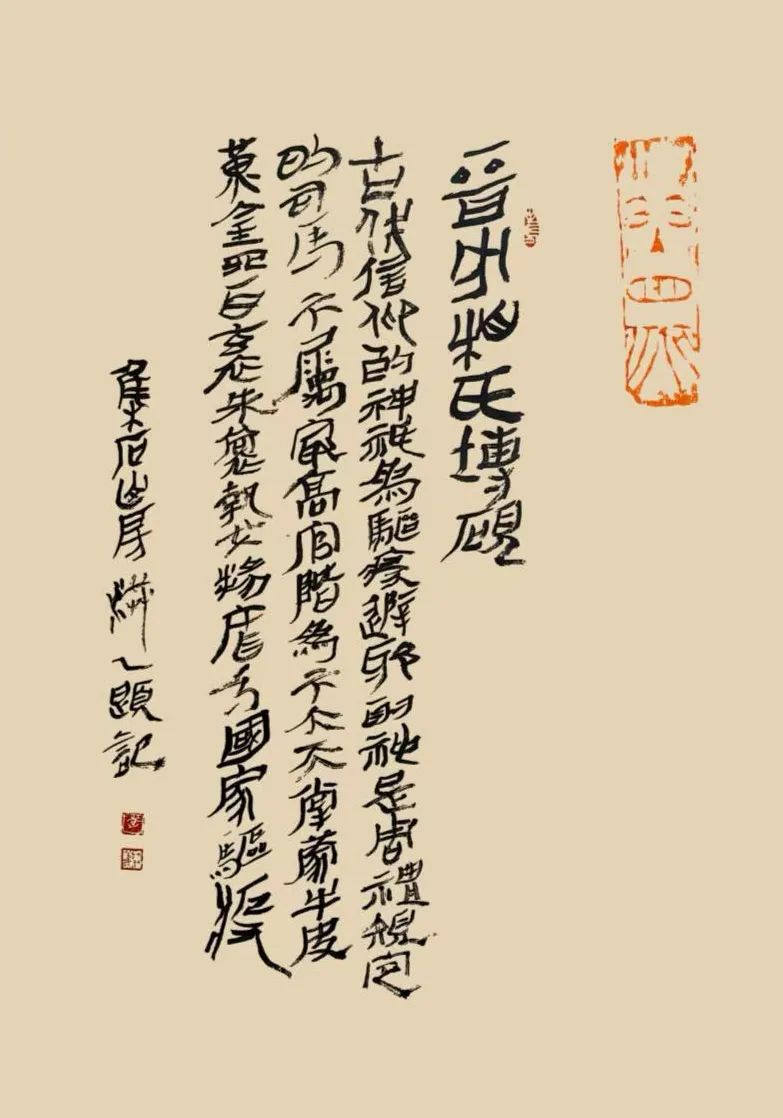 晉方相氏塼硯
古代信仰的神祇為驅疫避邪的神是周禮規定
的司馬下屬最高官階為下大夫掌蒙牛皮
黃金四目玄衣朱裳執戈揚盾為國家驅疫
集石山房題記